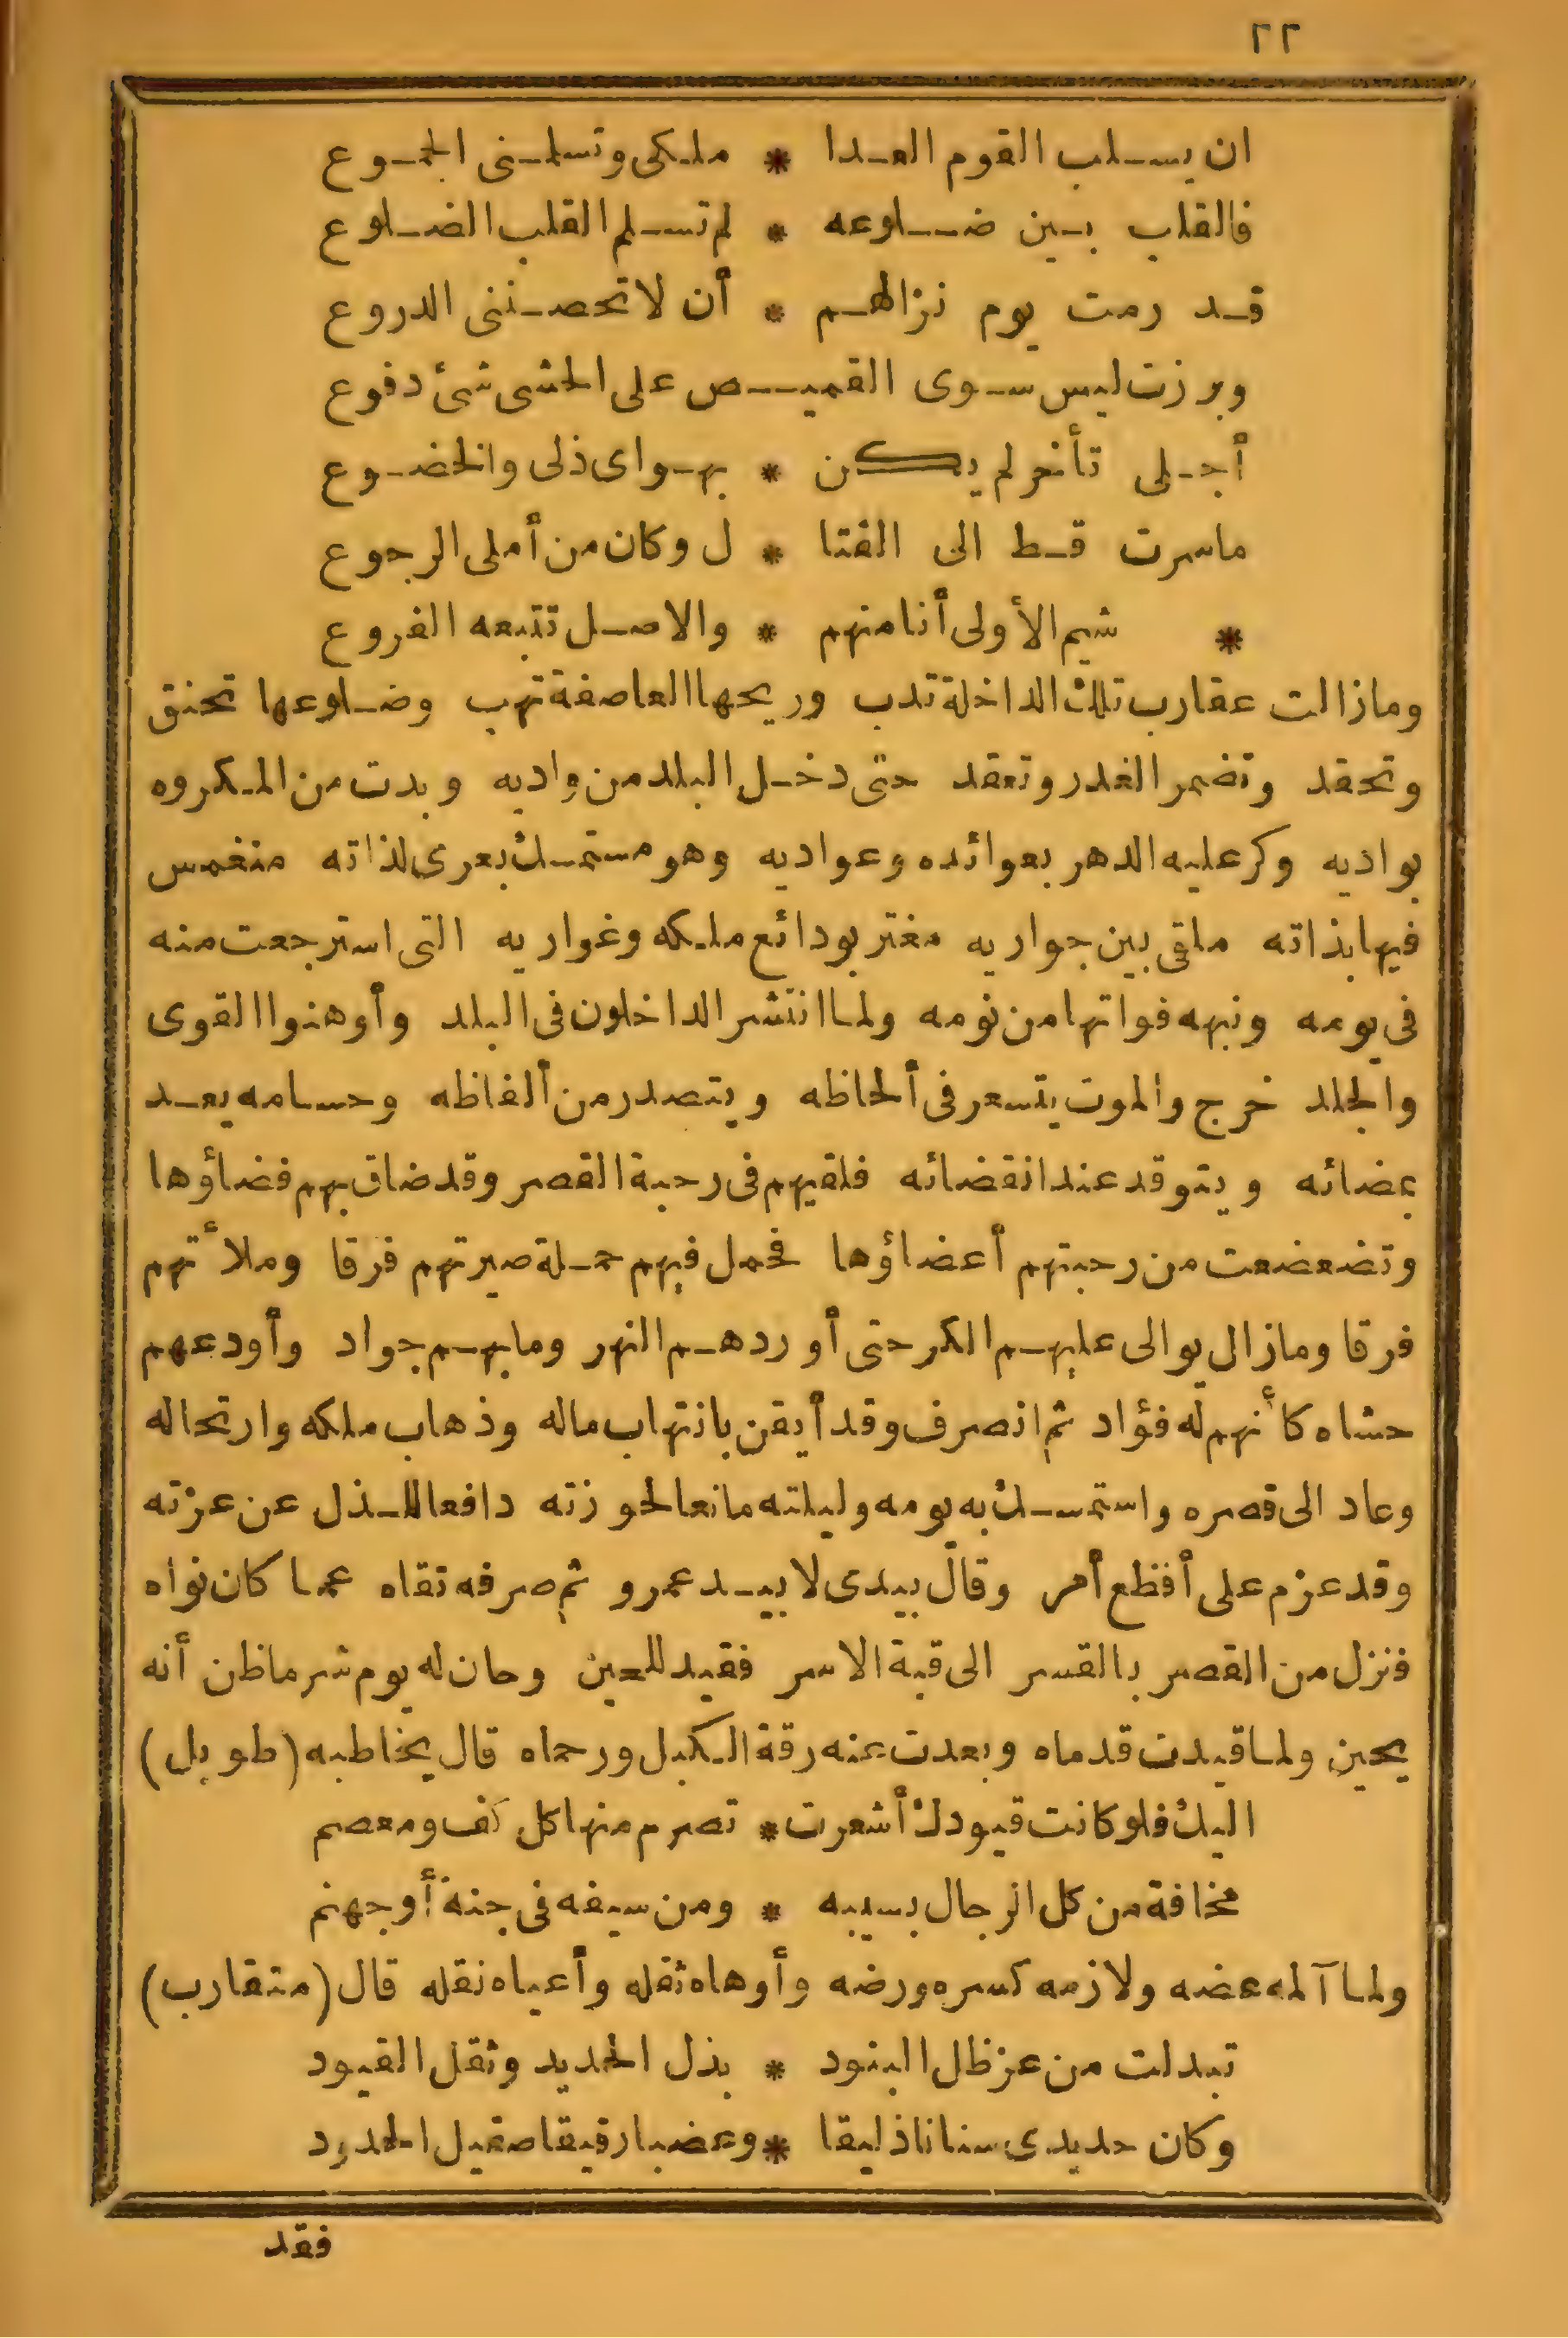 ٢٢
ان يسلب القوم العدا * ملكى وتسلمنى الجموع
فالقلب بين ضلوعه * لم تسلم القلب الضلوع
قد رمت يوم نزالهم * أن لا تحصننى الدروع
وبرزت ليس سوى القميص على الحشى شئ دفوع
أجلى تأخر لم يكن * بهواى ذلى والخضوع
ماسرت قط الى القتا * ل وكان من أملى الرجوع
* شيم الأولى أنا منهم * والاصل تتبعه الفروع
ومازالت عقارب تلك الداخلة تدب وريحها العاصفة تهب وضلوعها تحنق
وتحقد وتضمر الغدر وتعقد حتى دخل البلد من واديه وبدت من المكروه
بواديه وكر عليه الدهر بعوائده وعواديه وهو مستمسك بعرى لذاته منغمس
فيها بذاته ملقى بين جواريه مغتر بودائع ملكه وغواريه التى استرجعت منه
فى يومه ونبهه فواتها من نومه ولما انتشر الداخلون فى البلد وأوهنوا القوى
والجلد خرج والموت يتسعر فى ألحاظه ويتصدر من ألفاظه وحسامه يعد
بمضائه ويتوقد عند انقضائه فلقيهم فى رحبة القصر وقد ضاق بهم فضاؤها
وتضعضعت من رحبتهم أعضاؤها فحمل فيهم حملة صيرتهم فرقا وملأتهم
فرقا ومازال يوالى عليهم الكر حتى أوردهم النهر ومابهم جواد وأودعهم
حشاه كأنهم له فؤاد ثم انصرف وقد أيقن بانتهاب ماله وذهاب ملكه وارتحاله
وعاد الى قصره واستمسك به يومه وليلته مانعا لحوزته دافعا للذل عن عزته
وقد عزم على أفظع أمر وقال بيدى لا بيد عمرو ثم صرفه تقاه عما كان نواه
فنزل من القصر بالقسر الى قبة الاسر فقيد للحين وحان له يوم شر ماظن أنه
يحين ولما قيدت قدماه وبعدت عنه رقة الكبل ورحماه قال يخاطبه (طويل)
اليك فلو كانت قيودك أشعرت * تصرم منها كل كف ومعصم
مخافة من كل الرجال بسيبه * ومن سيفه فى جنة أو جهنم
ولما آلمه عضه ولازمه كسره ورضه وأوهاه ثقله وأعياه نقله قال (متقارب)
تبدلت من عز ظل البنود * بذل الحديد وثقل القيود
وكان حديدى سنانا ذليقا * وعضبا رقيقا صقيل الحدود
فقد